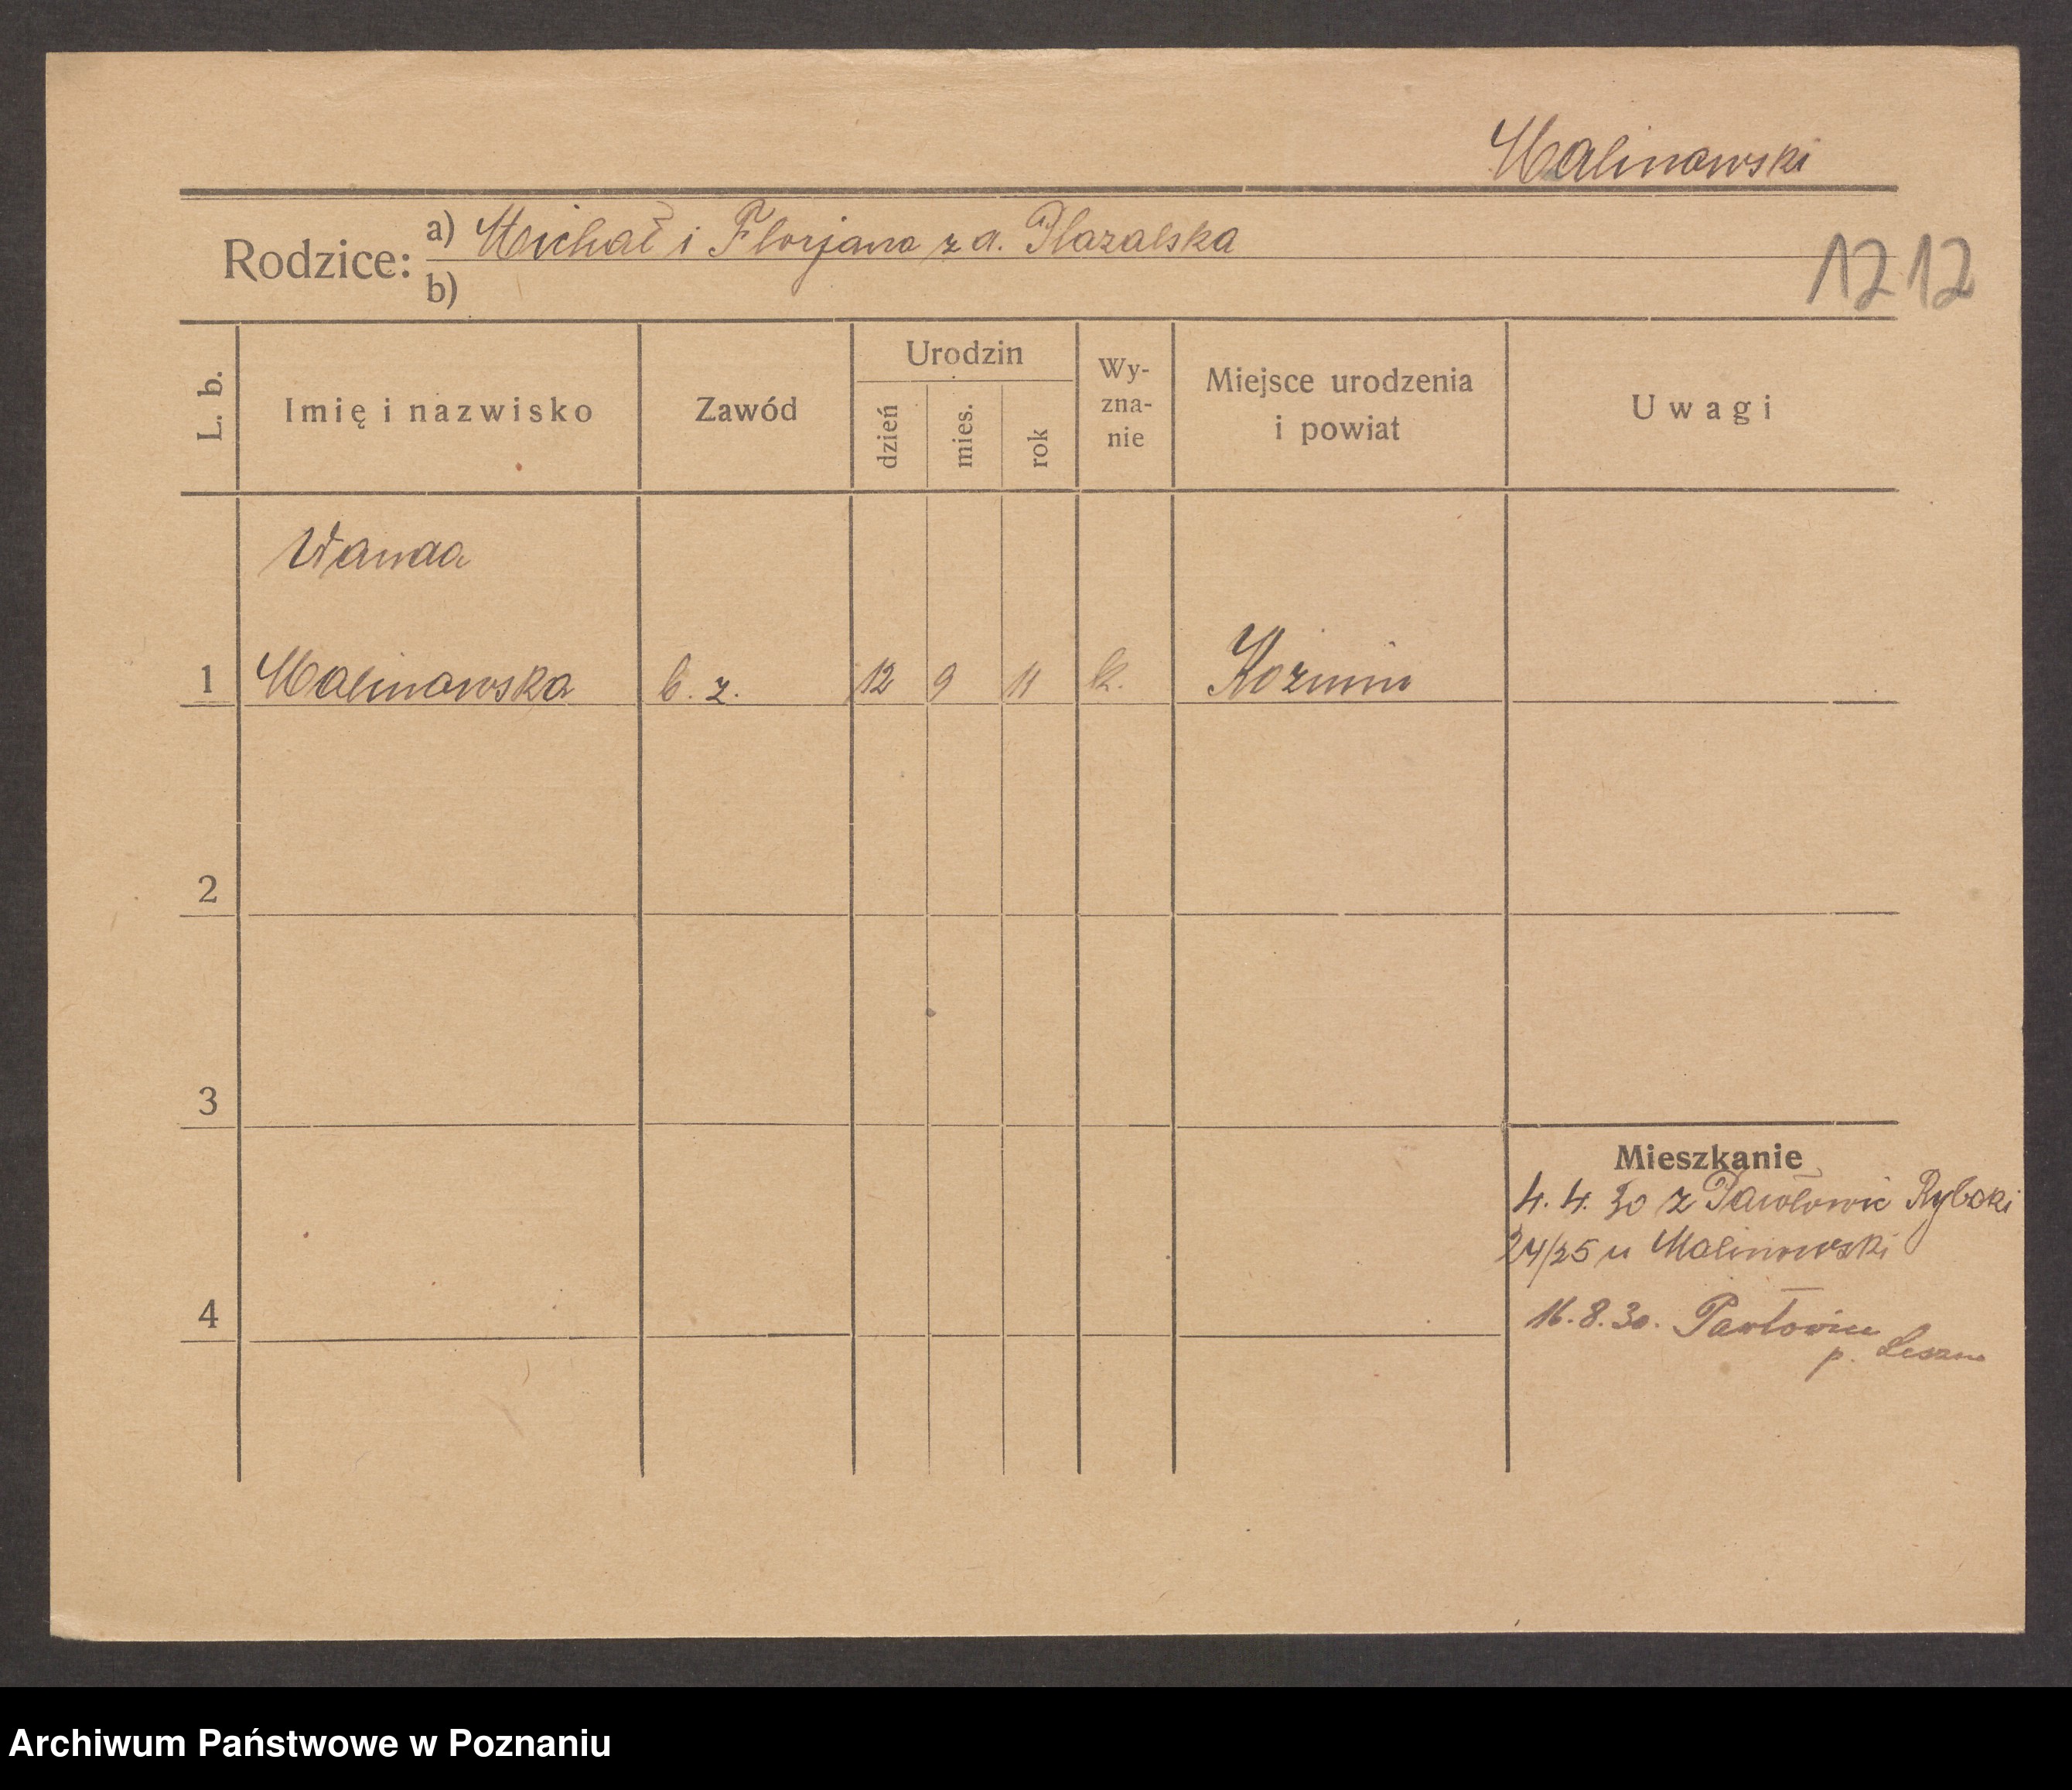 Malinowski
Rodzice: a) Michał i Florjana z d. Plazalska
b)
1212
L. b.
Imię i nazwisko
Zawód
Urodzin
dzień
mies.
rok
Wy-
zna-
nie
Miejsce urodzenia
i powiat
Uwagi
Wanda
1 Malinowska b. z. 12 9 11 k. Kozmin
2
3
Mieszkanie
4. 4. 30 z Pawłowic Rybaki
24/25 u Malinowski
4
16.8.30. Pawłowice
p. Leszno
Archiwum Państwowe w Poznaniu